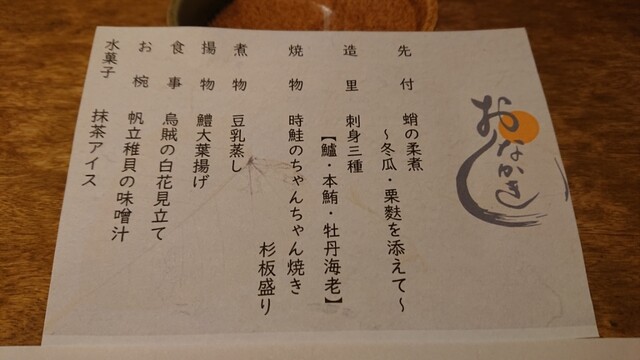 おなかき
先付 蛸の柔煮
〜冬瓜・栗麩を添えて〜
造里 刺身三種
【鱸・本鮪・牡丹海老】
焼物 時鮭のちゃんちゃん焼き
杉板盛り
煮物 豆乳蒸し
揚物 鱧大葉揚げ
食事 烏賊の白花見立て
お椀 帆立稚貝の味噌汁
水菓子 抹茶アイス